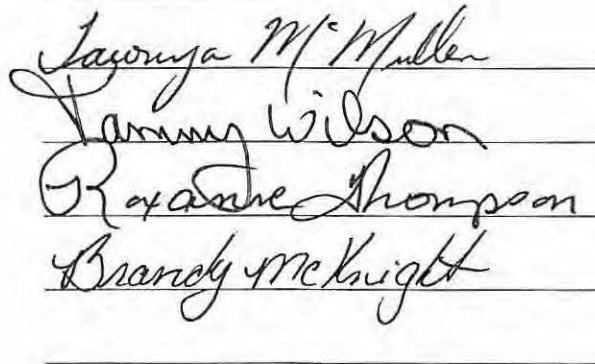 McMullen
Tammy Wilson
Roxanne Thompson
Brandy McKnight